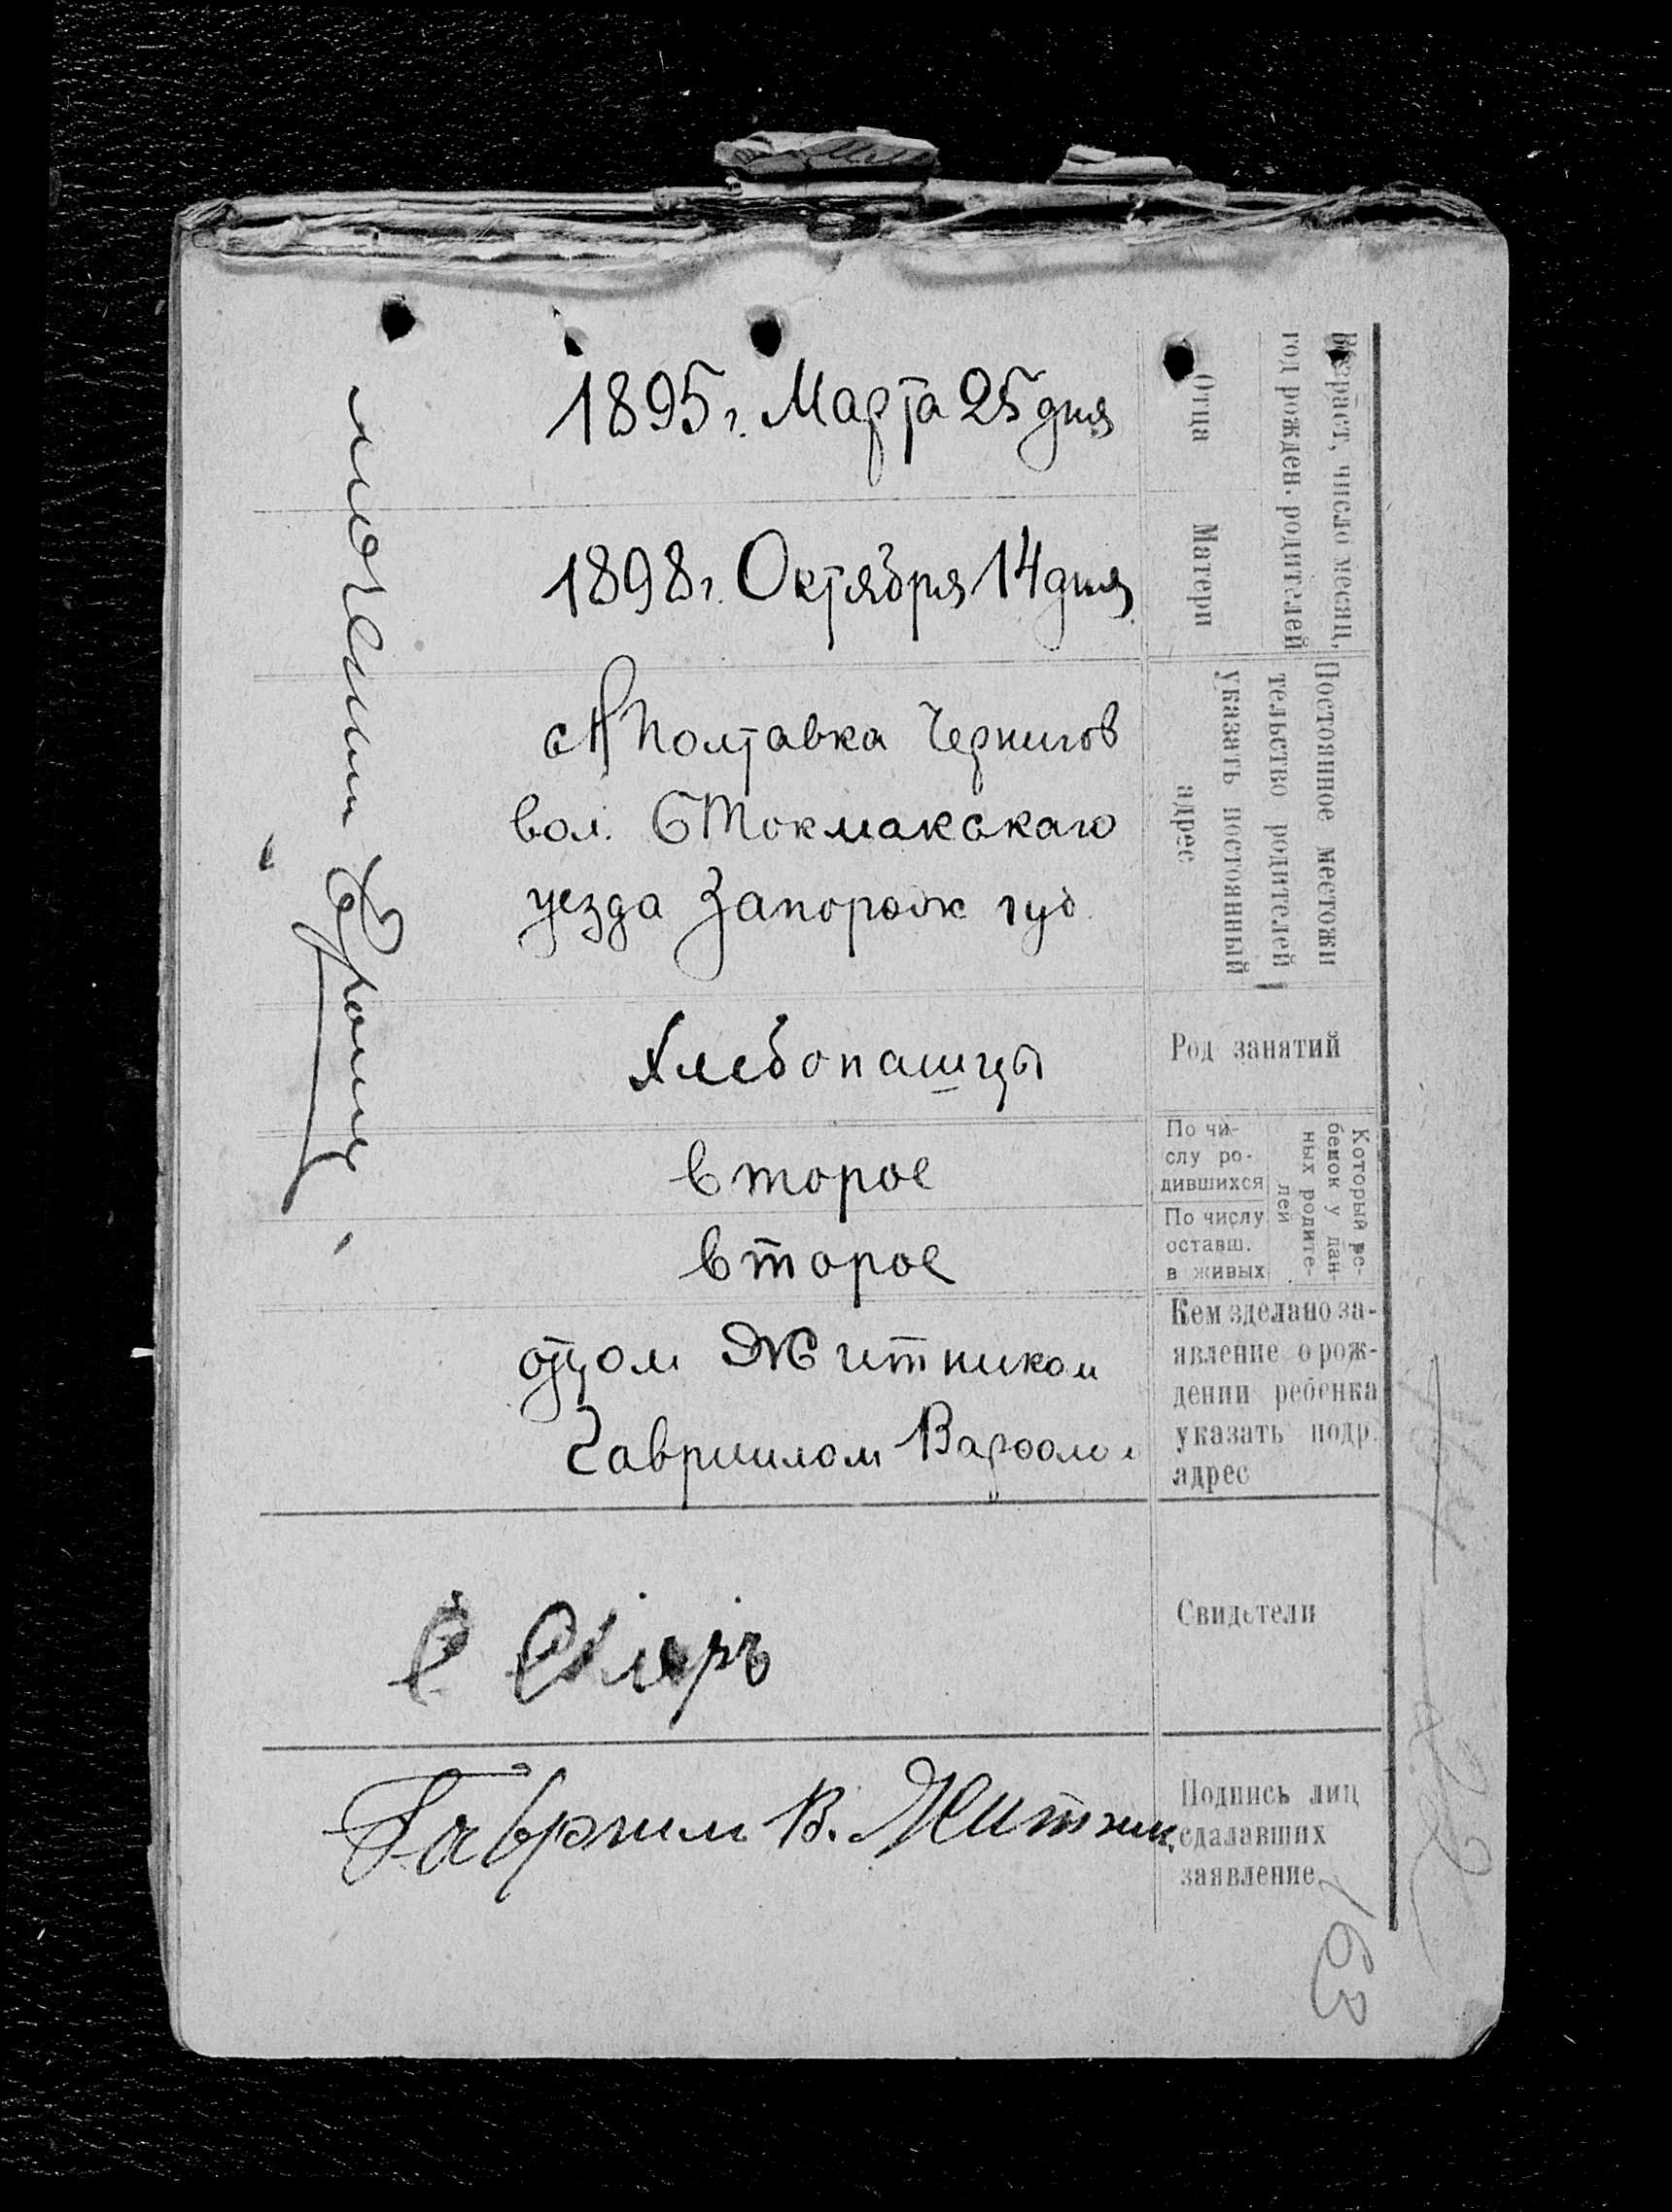 Возраст, число месяц,
год рожден. родителей
Отца
1895 г. Марта 25 дня
Матери
1898 г. Октября 14 дня
Постоянное местожи
тельство родителей
указать постоянный
адрес
Полтавка Чернигов
вол. Б Токмакскаго
уезда Запорож губ.
Род занятий
Хлебопашцы
Который ре-
бенок у дан-
ных родите-
лей
По чи-
слу ро-
дившихся
второе
По числу
оставш.
в живых
второе
Кем зделано за-
явление о рож-
дении ребенка
указать подр.
адрес
отцом Житником
Гавриилом Варфол
Свидетели
Подпись лиц
сдалавших
заявление
Гавриил В. Житник
163